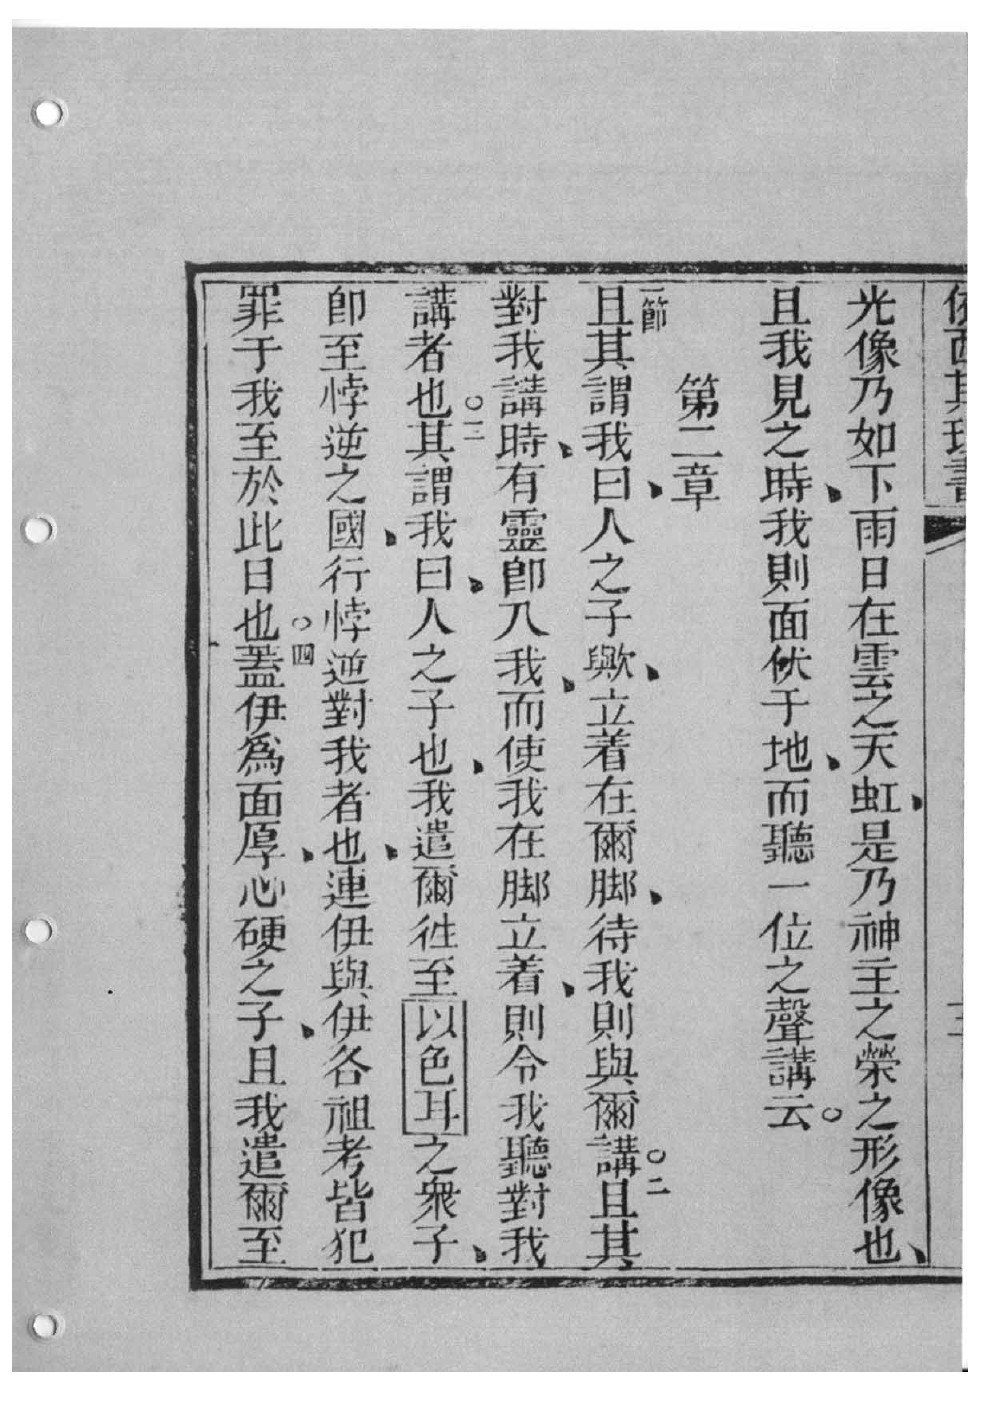 光像乃如下雨日在雲之天虹、是乃神主之榮之形像也、
且我見之時、我則面伏于地、而聽一位之聲講云。
第二章
一節且其謂我曰、人之子歟、立着在爾脚、待我則與爾講。二且其
對我講時、有靈即入我、而使我在脚立着、則令我聽對我
講者也。三其謂我曰、人之子也、我遣爾徃至以色耳之衆子、
卽至悖逆之國、行悖逆對我者也、連伊與伊各祖考皆犯
罪于我至於此日也。四蓋伊爲面厚、心硬之子、且我遣爾至